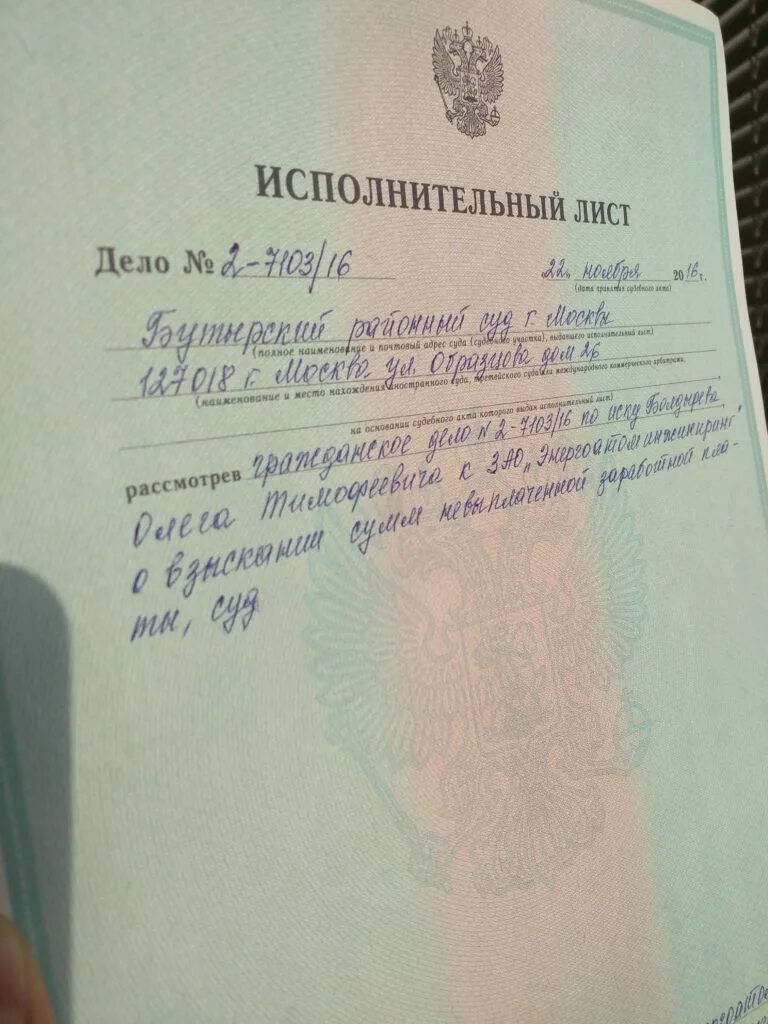 ИСПОЛНИТЕЛЬНЫЙ ЛИСТ
Дело № 2-7103/16 22 ноября 2016 г.
(дата принятия судебного акта)
Бутырский районный суд г. Москвы
(полное наименование и почтовый адрес суда (судебного участка), выдавшего исполнительный лист)
127018 г. Москва ул. Образцова дом 26
(наименование и место нахождения иностранного суда, третейского суда или международного коммерческого арбитража,
на основании судебного акта которого выдан исполнительный лист)
рассмотрев гражданское дело № 2-7103/16 по иску Болдырева
Олега Тимофеевича к ЗАО „Энергоатоминжиниринг"
о взыскании сумм невыплаченной заработной пла-
ты, суд